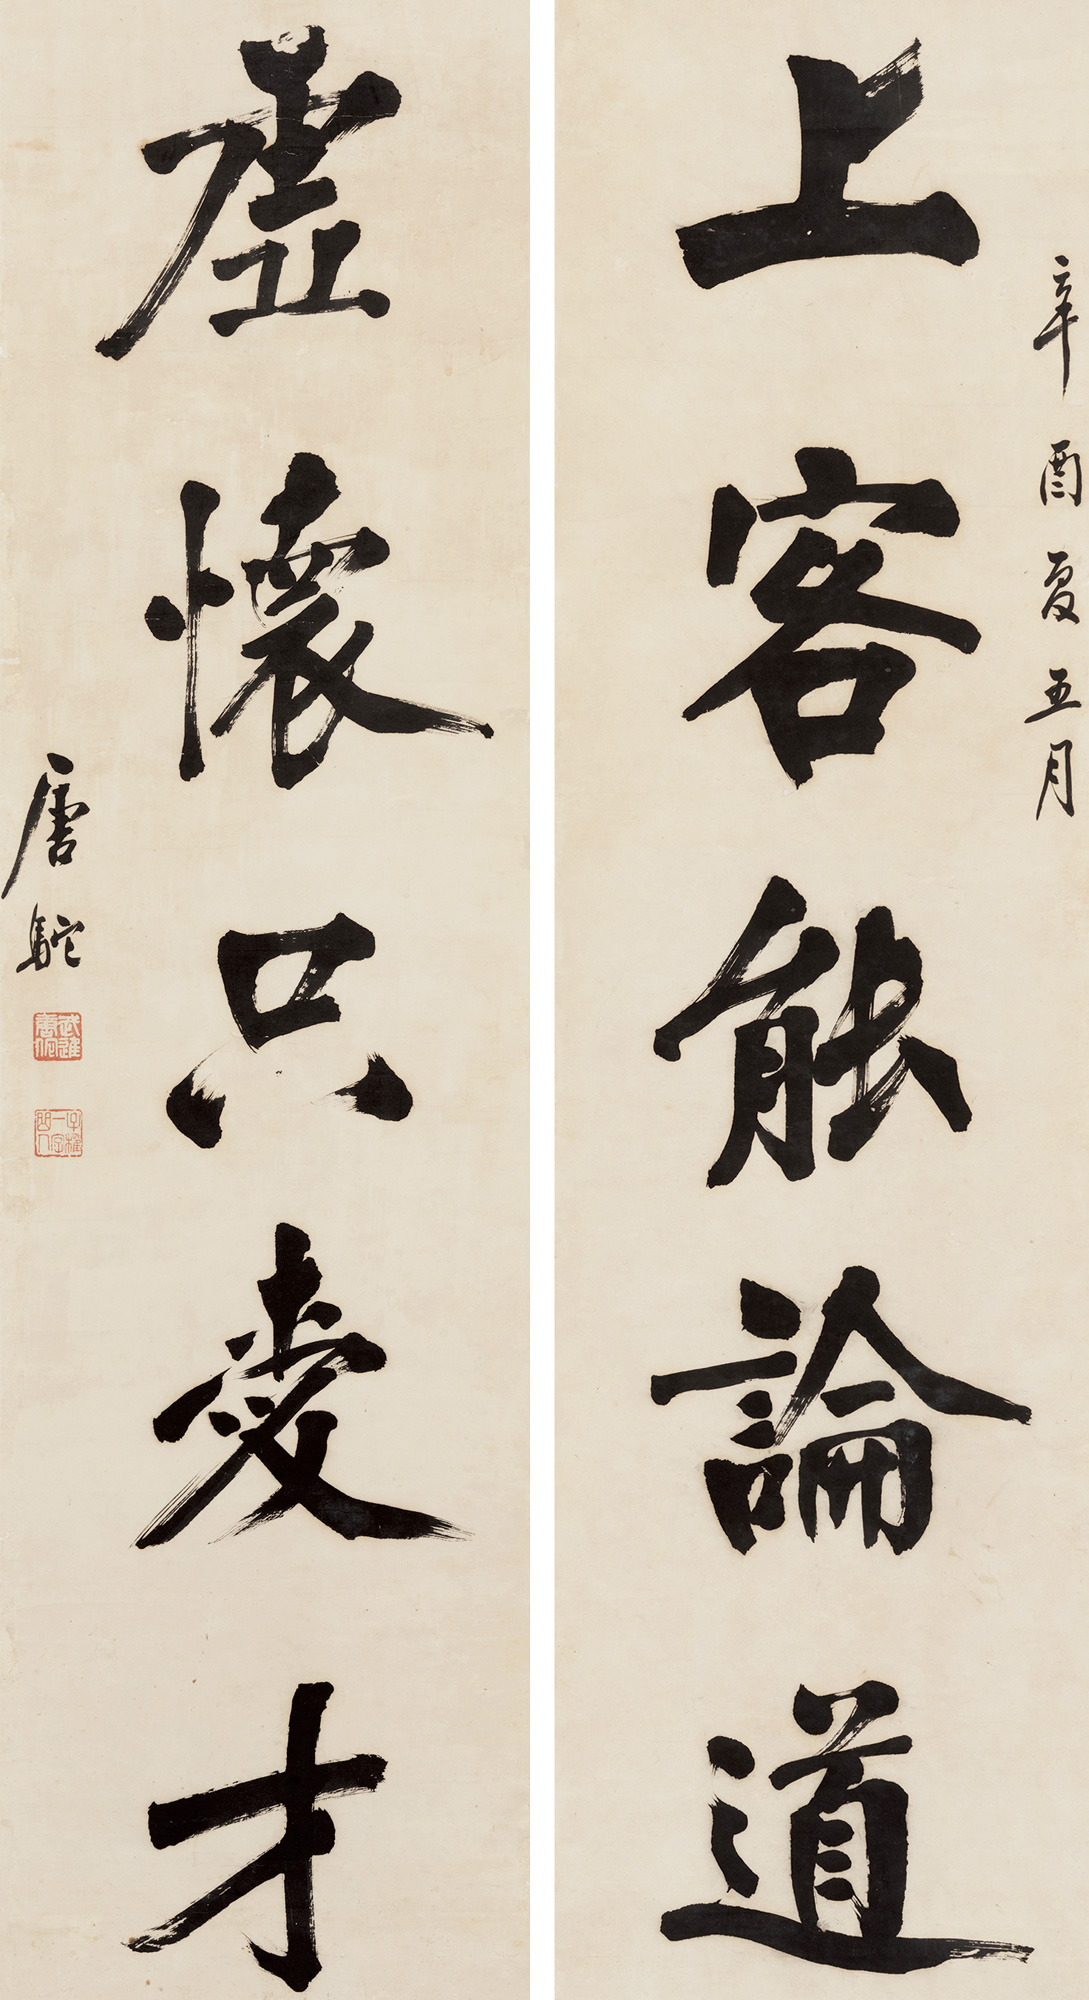 辛酉夏五月
上客能論道
虛懷只愛才
唐駝
武進唐駝